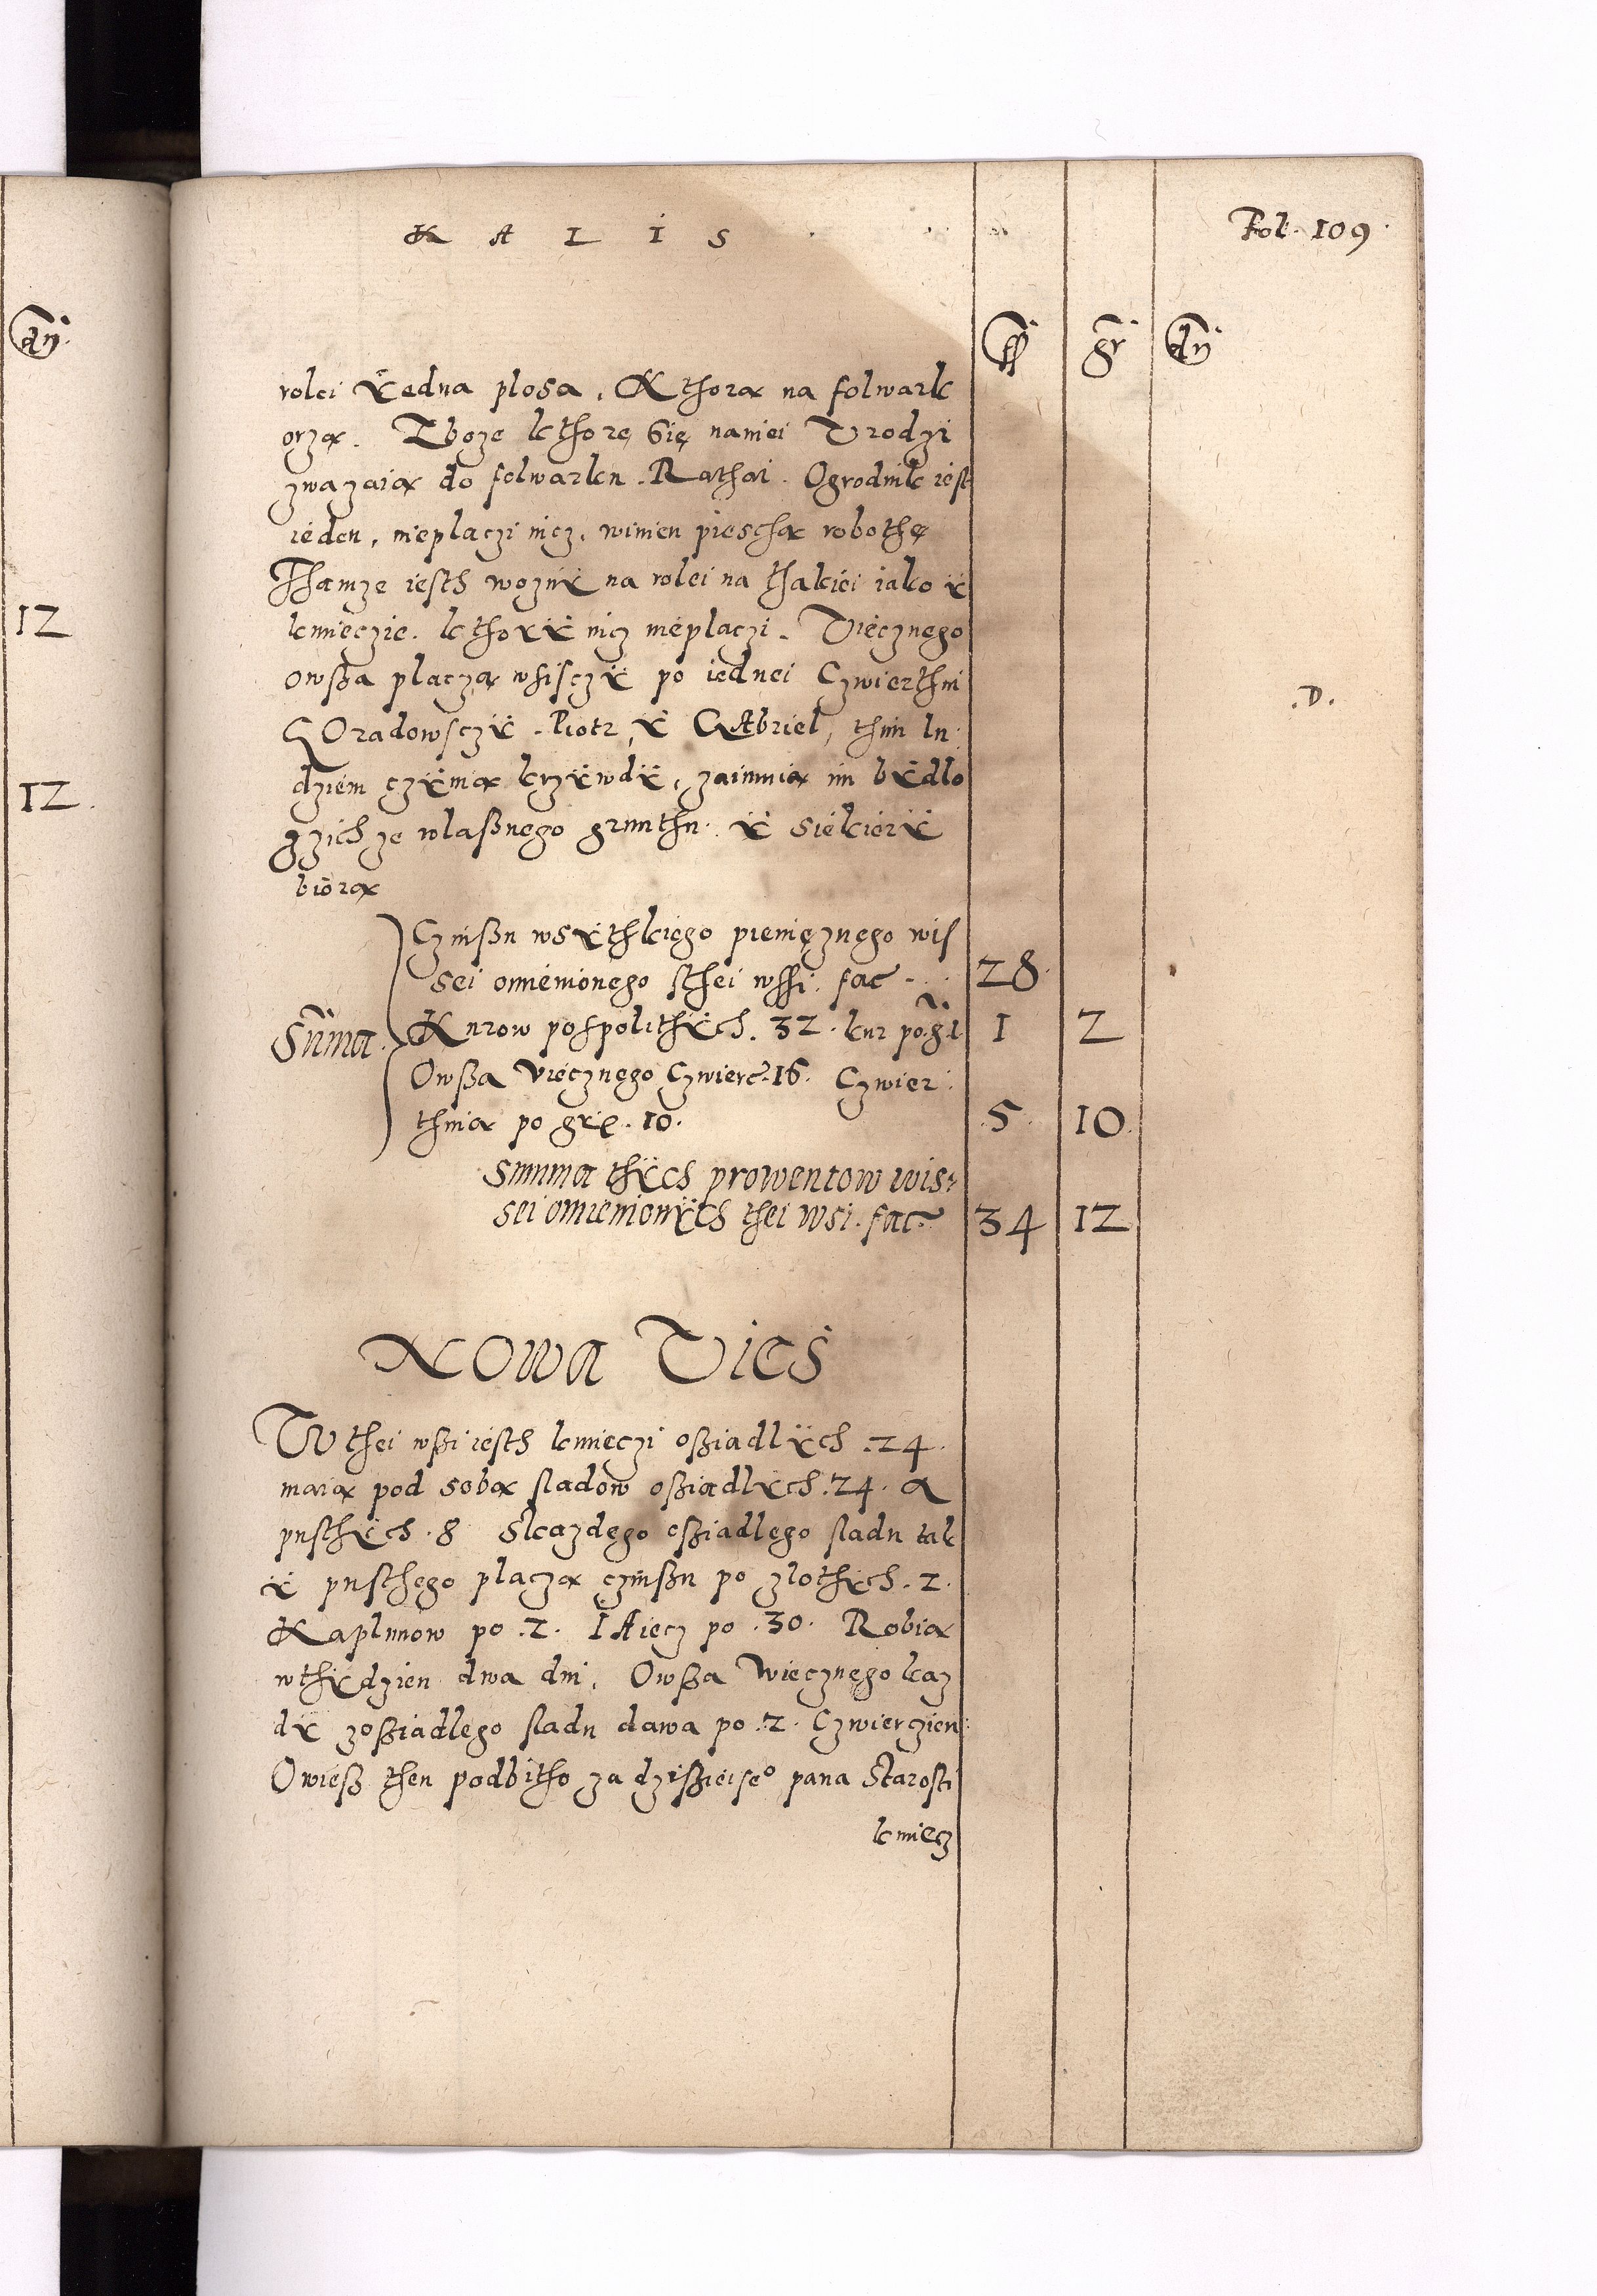 K A L I S
Fol. 109
fl gr dn
dn
rolei ÿedna plosa, Kthorą na folwark
orzą. Zboze kthorę się naniei Vrodzi
zwazaią do folwarku. Rathai. Ogrodnik iest
ieden, nieplaczi nicz, winien pieschą robothę
Thamze iesth wozniÿ na rolei na thakiei iako ÿ
kmieczie. kthorÿ nicz nieplaczi. Viecznego
owßa placzą wsisczÿ po iednei Czwierthni
GOradowsczÿ. Piotr, ÿ GAbriel, thim lu
dziem czÿnią krzÿwdÿ, zaimuią im bÿdlo
gzich ze wlaßnego grunthu. ÿ siekierÿ
biorą
Czinßu wsÿthkiego pienięznego wis
sei omienionego sthei wssi. fac 28
Suma. Kurow pospolithÿch. 32. kur po. g. 1. 1 2
Owßa viecznego Czwierc. 16. Czwier
thnia po grę. 10. 5. 10.
Summa thÿch prowentow wis
sei omienionÿch thei wsi. fac 34 12
12
12.
.D.
NOWA VIES
W thei wßi iesth kmieczi oßiadlÿch .24.
maią pod sobą sladow oßiadlÿch .24. a
pusthÿch .8 Skazdego oßiadlego sladu tak
ÿ pusthego placzą czinßu po zlothÿch .2.
Kaplunow po .2. IAiecz po .30. Robią
wthÿdzien dwa dni. Owßa Wiecznego kaz
dÿ zoßiadlego sladu dawa po .2. Czwierzien
Owieß then podbitho za dzißieiseo pana Starosti
kmiecz